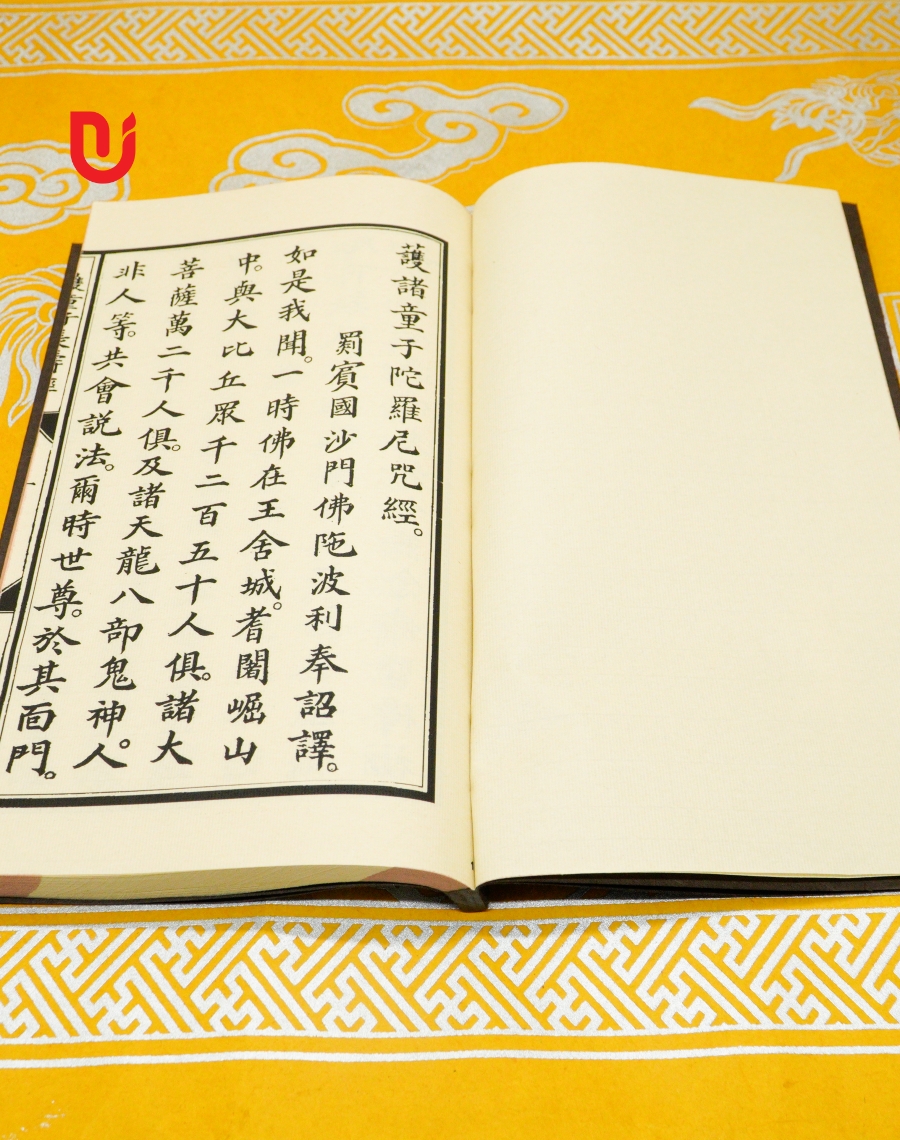 護諸童子陀羅尼咒經。
罽賓國沙門佛陁波利奉詔譯。
如是我聞。一時佛在王舍城。耆闍崛山
中。與大比丘眾千二百五十人俱。諸大
菩薩萬二千人俱。及諸天龍八部鬼神。人
非人等。共會説法。爾時世尊。於其面門。